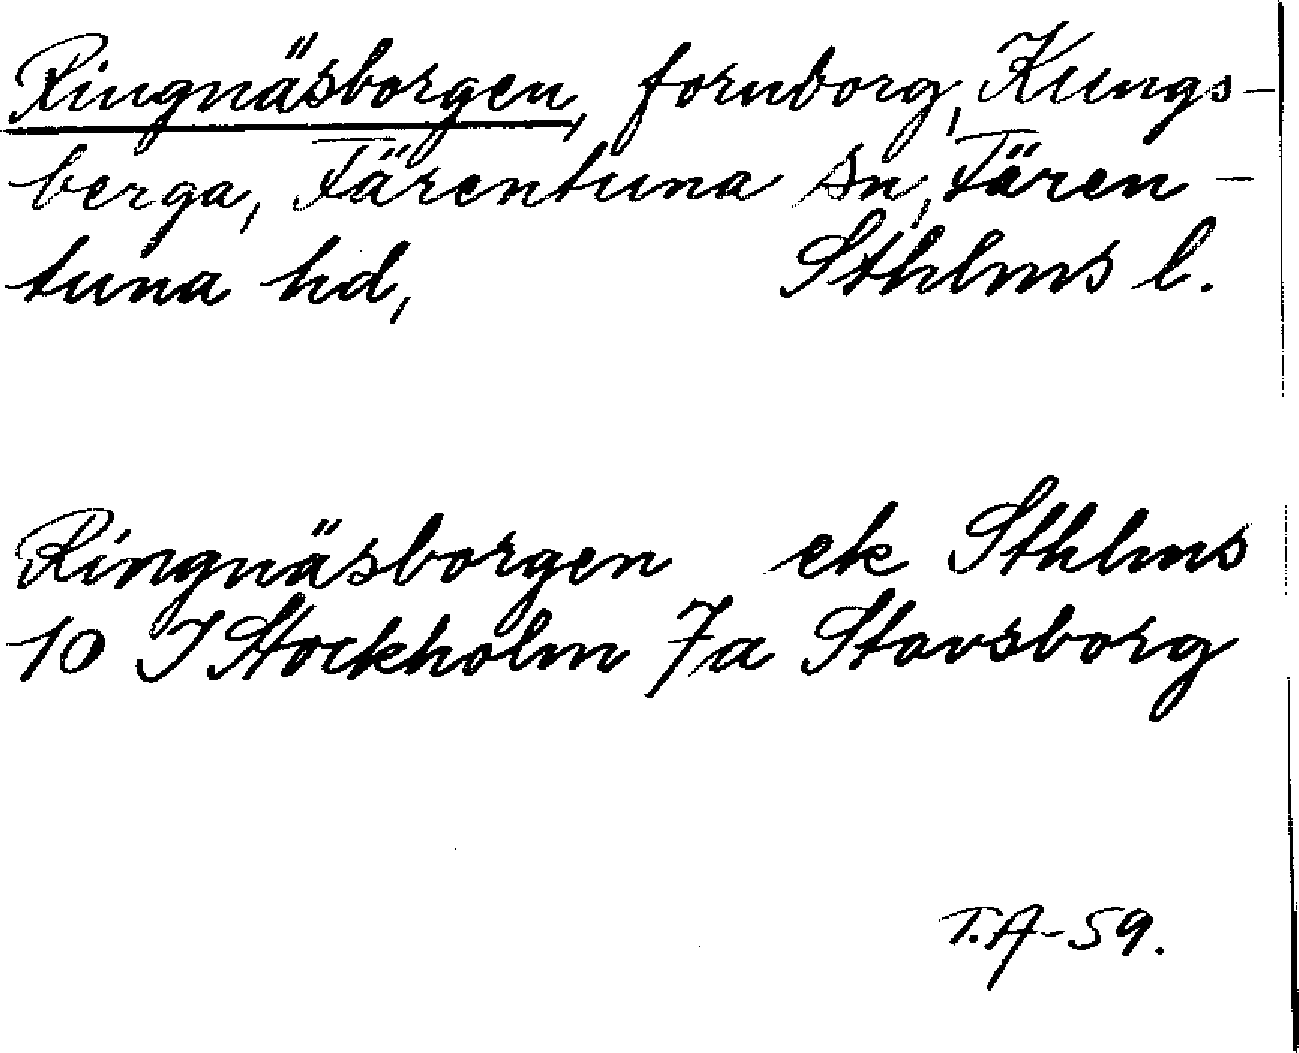 Ringnäsborgen, fornborg, Kungs-
berga, Färentuna sn, Fären-
tuna hd, Sthlms l.
Ringnäsborgen ek Sthlms
10 I Stockholm 7a Stavsborg
T.A-59.